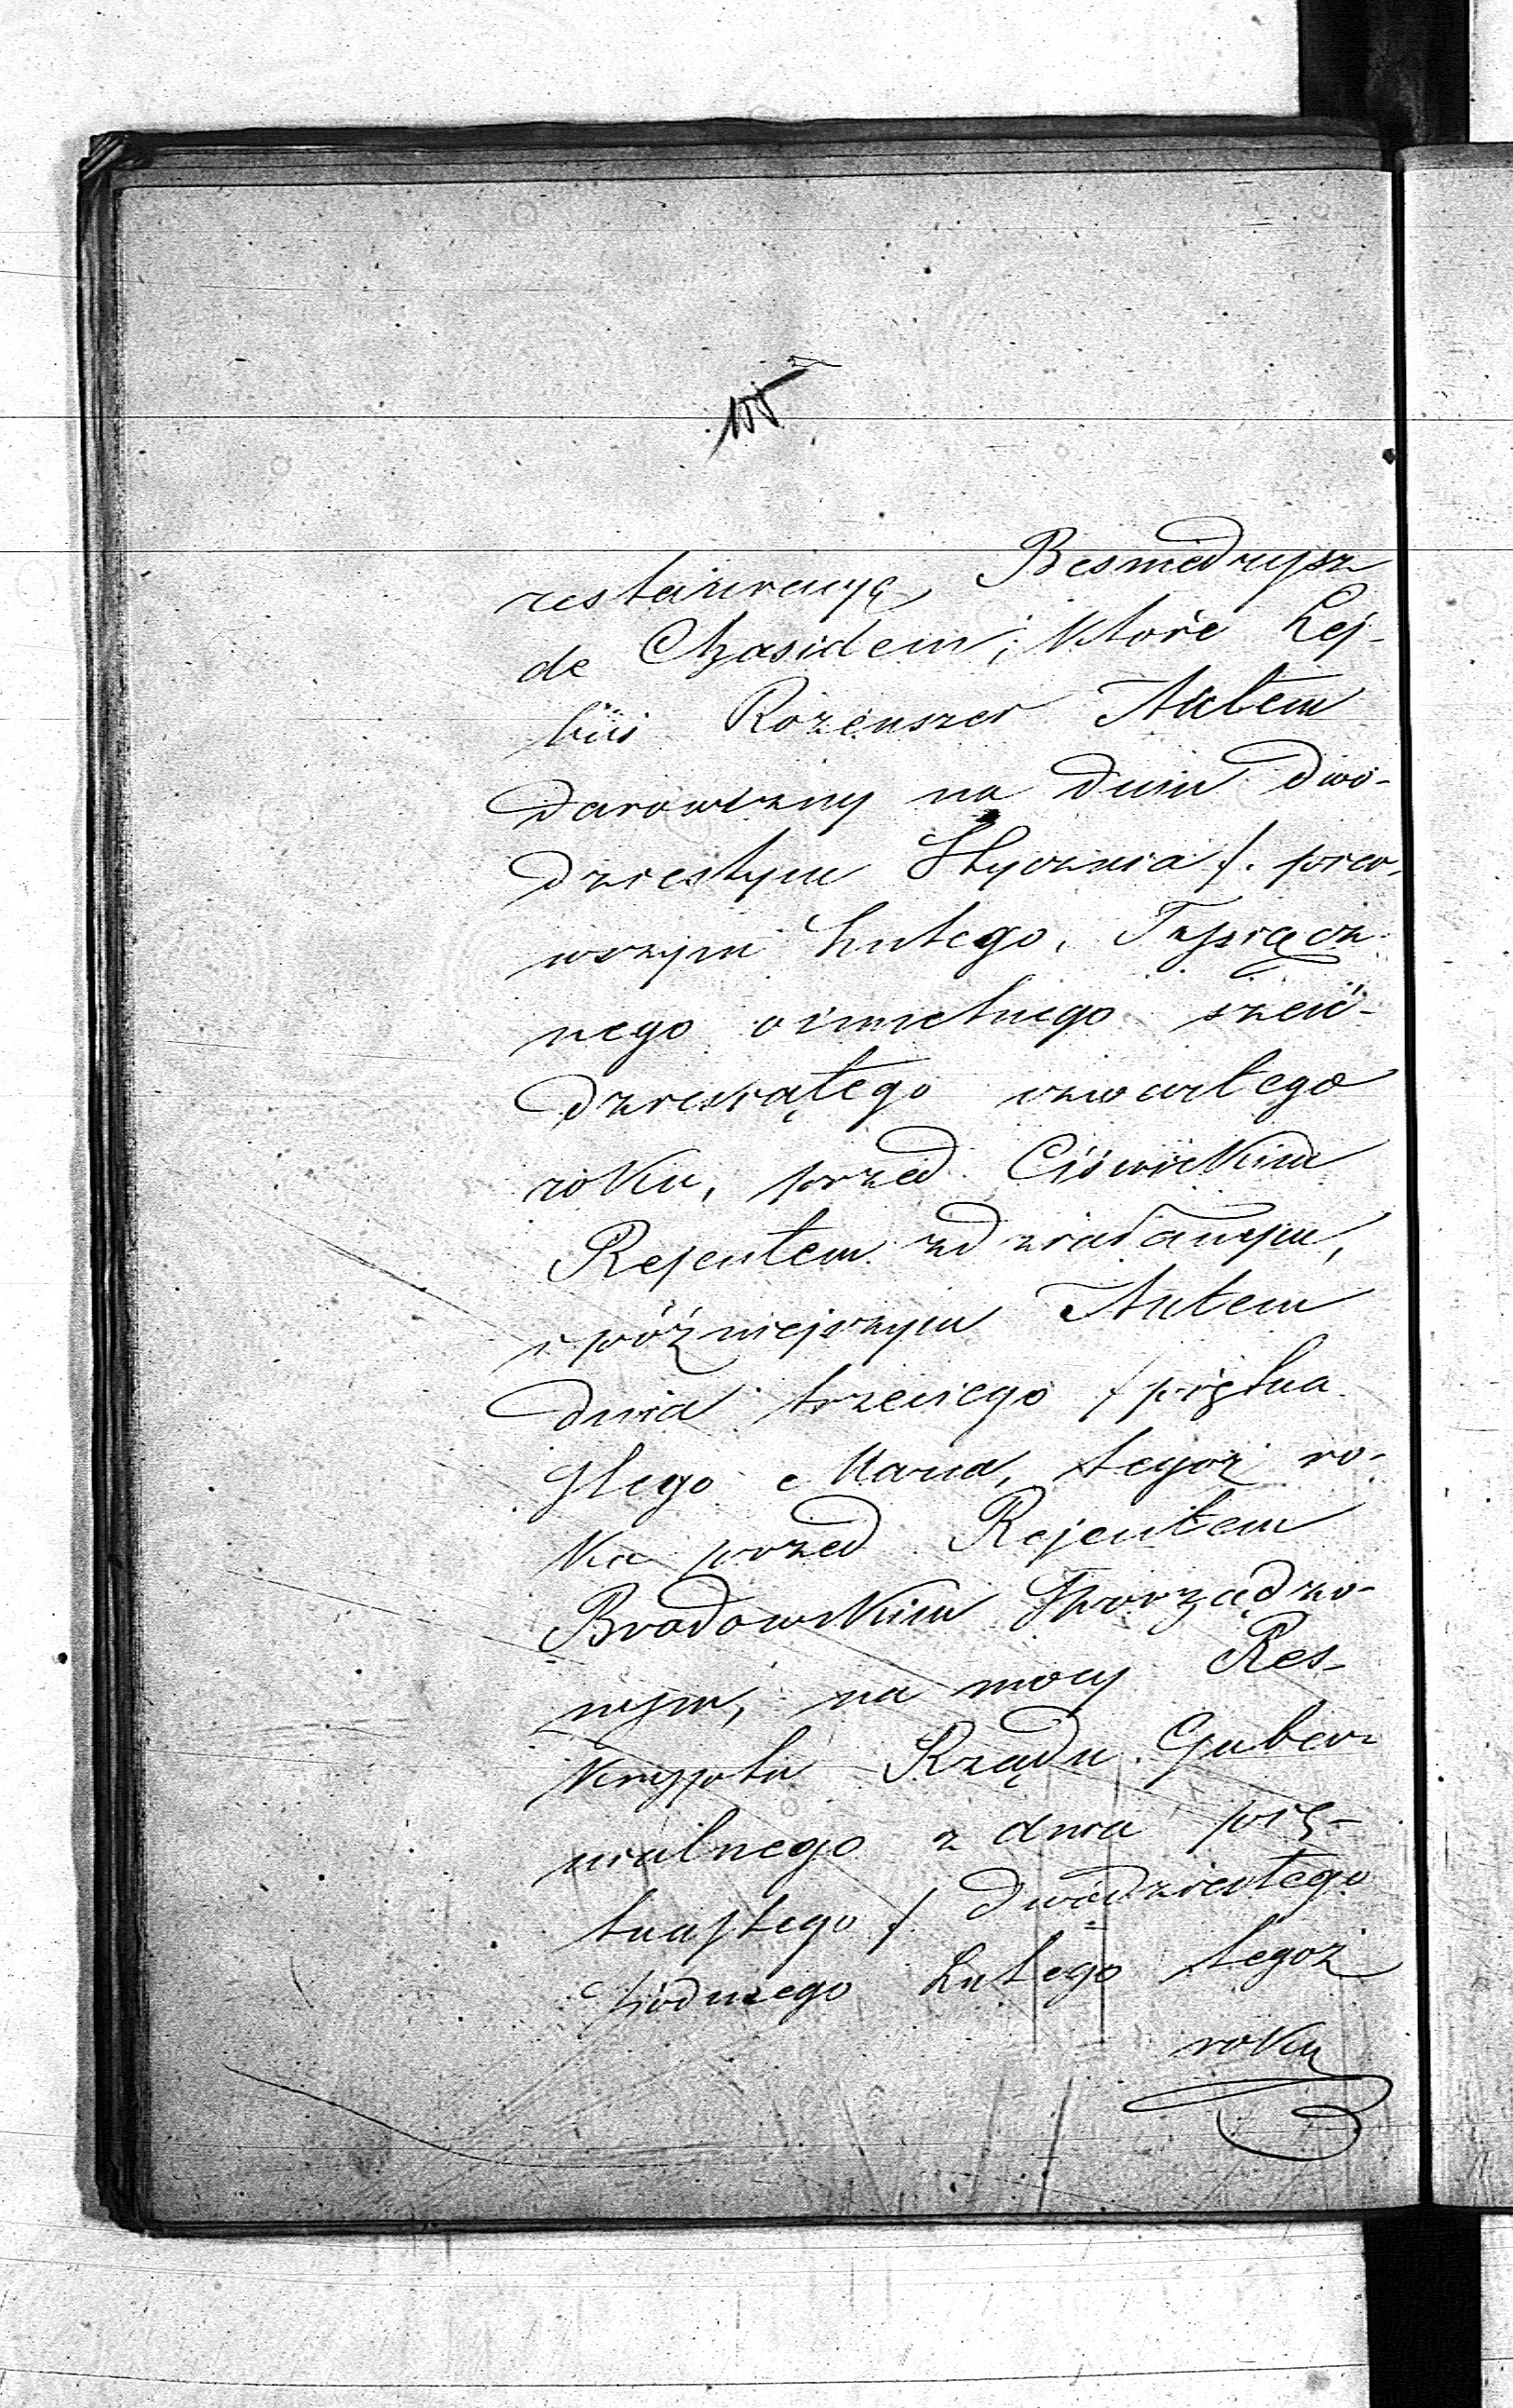 155
restauracyę Besmedrysz
de Chasidem; które Lej-
buś Rozenszer Aktem
Darowizny na dniu dwu-
dziestym Stycznia /. pier-
wszym Lutego, Tysiącz
nego ośmsetnego sześć-
dziesiątego czwartego
roku, przed Ciświckim
Rejentem zdziałanym,
i późniejszym Aktem
dnia trzeciego / piętna
stego Marca, tegoż ro-
ku przed Rejentem
Brodowskim Sporządzo-
nym, na mocy Res-
kryptu Rządu Guber-
nialnego z dnia pię-
tnastego / dwudziestego
siódmego Lutego tegoż
roku